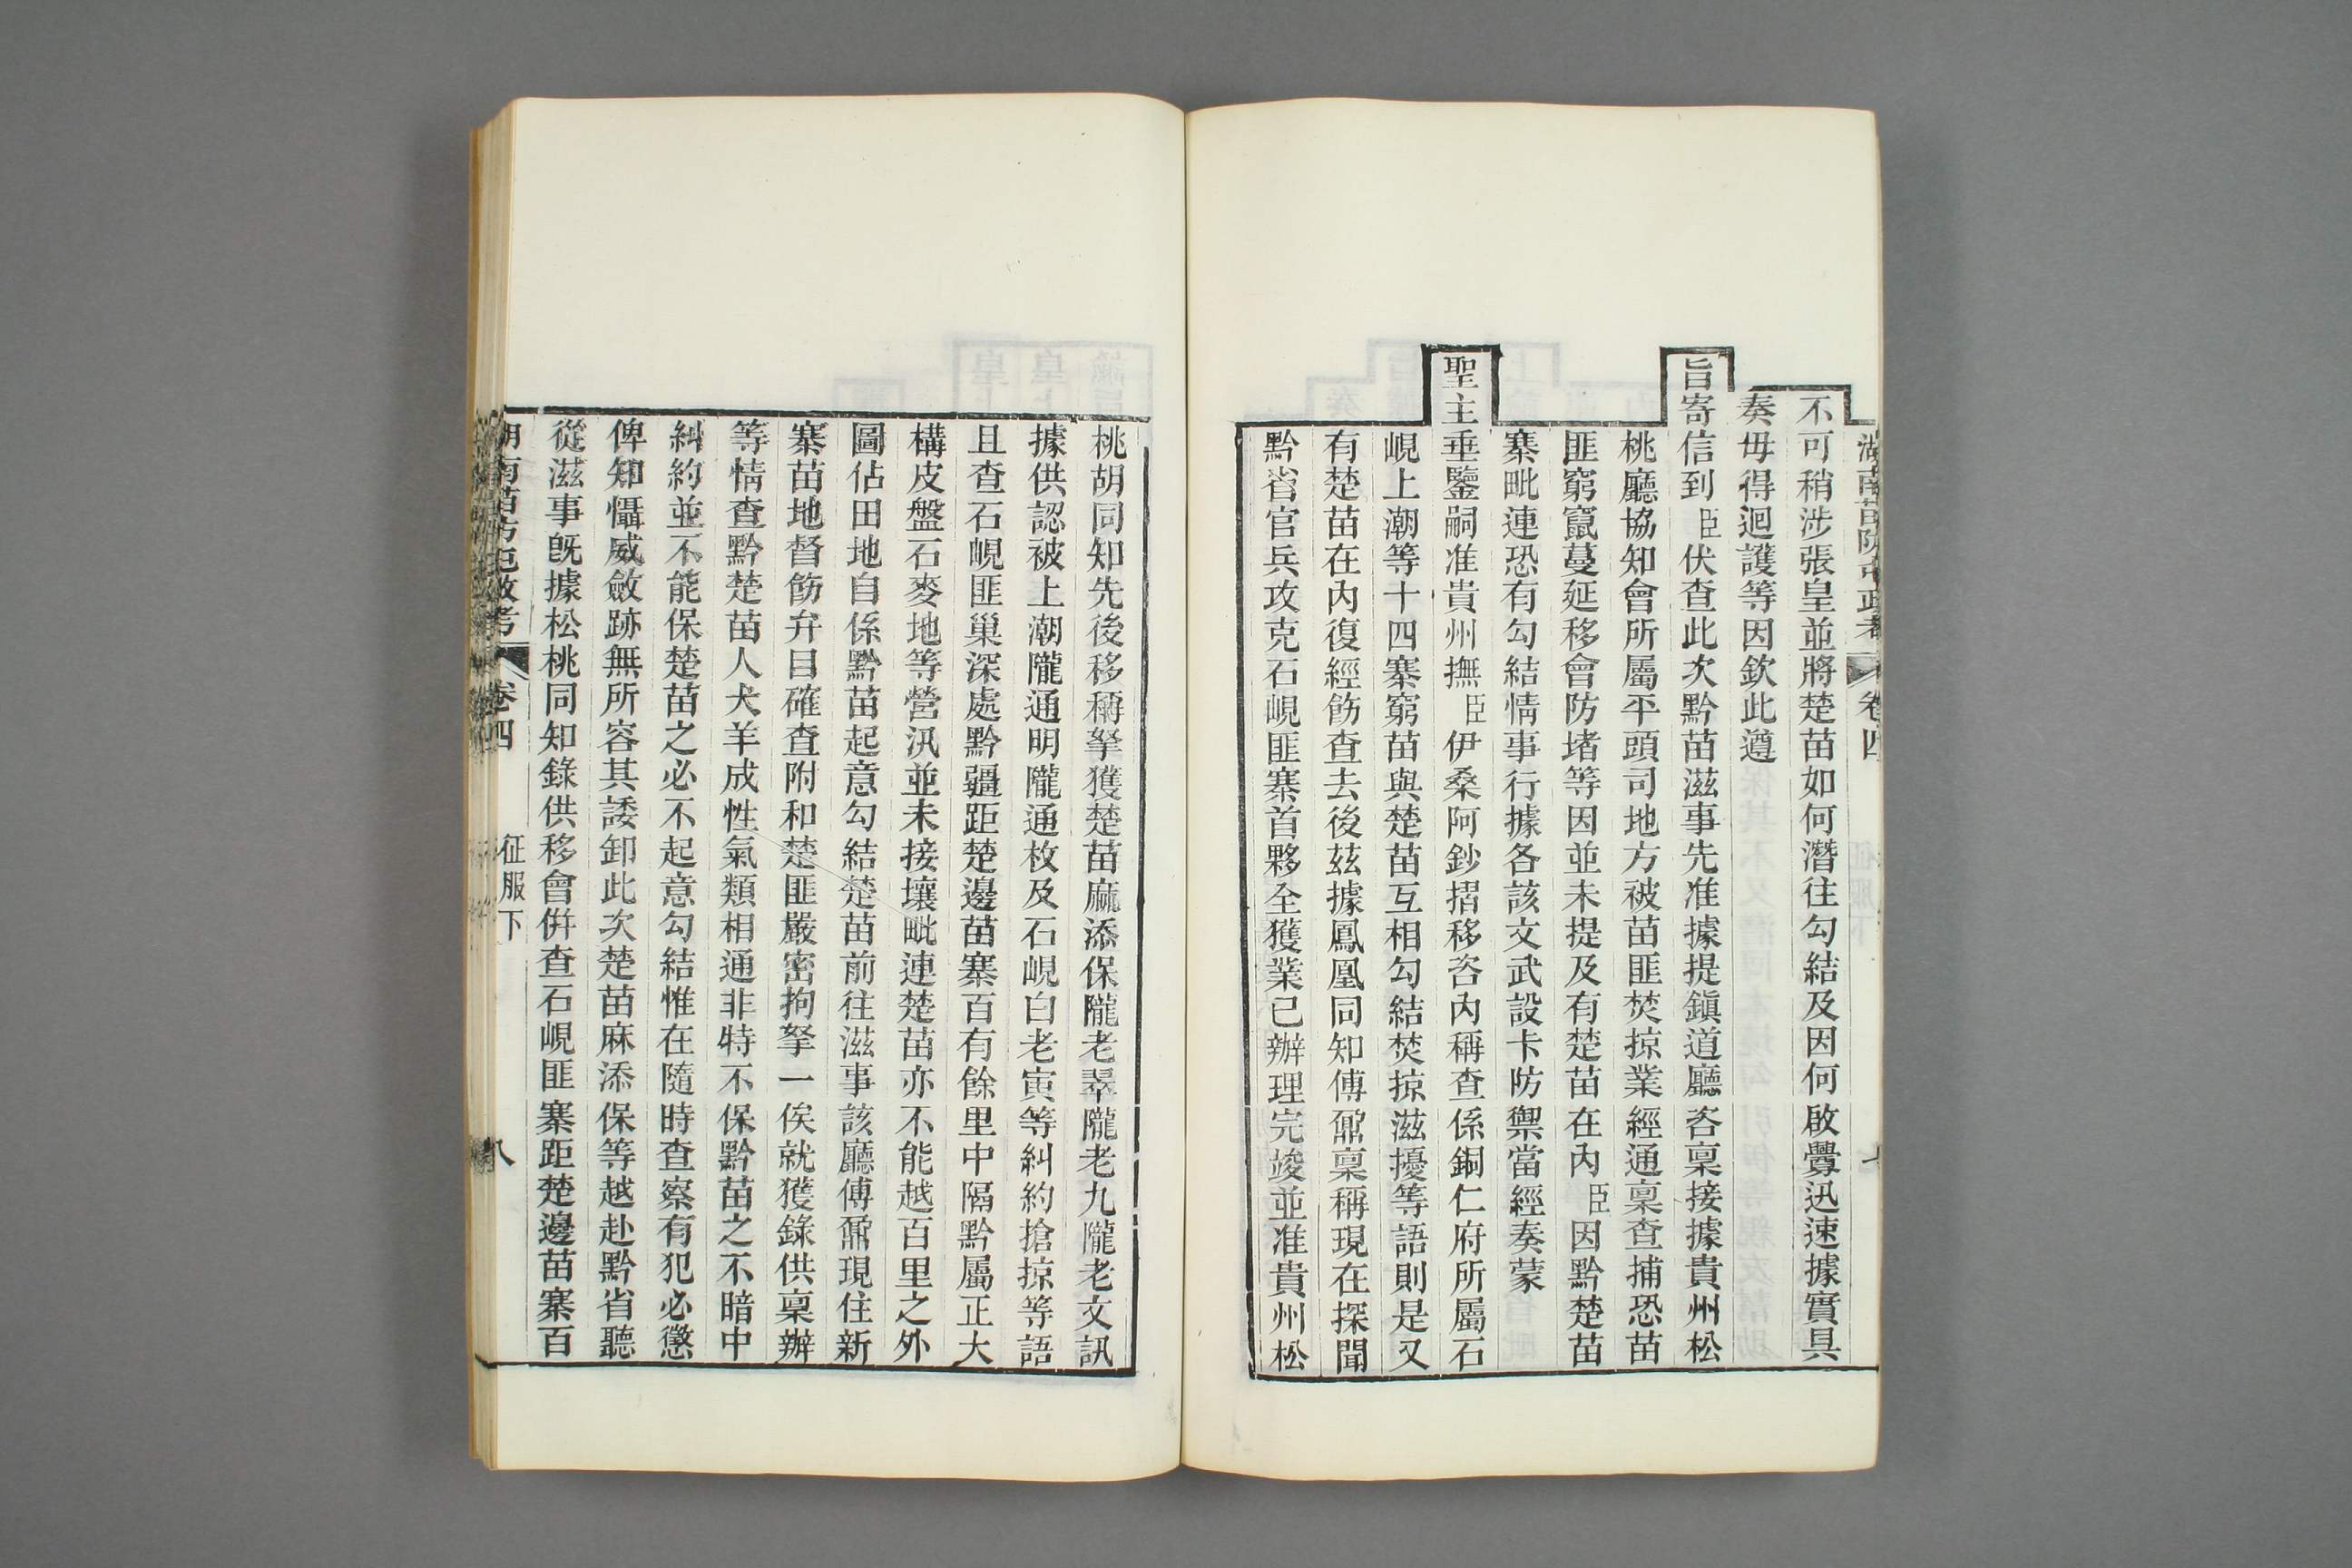 不可稍涉張皇並將楚苗如何潛往勾結及因何啟釁迅速據實具
奏毋得迴護等因欽此遵
旨寄信到臣伏查此次黔苗滋事先准據提鎭道廳咨稟接據貴州松
桃廳協知會所屬平頭司地方被苗匪焚掠業經通稟查捕恐苗
匪窮竄蔓延移會防堵等因並未提及有楚苗在內臣因黔楚苗
寨毗連恐有勾結情事行據各該文武設卡防禦當經奏蒙
聖主垂鑒嗣准貴州撫臣伊桑阿鈔摺移咨內稱查係銅仁府所屬石
峴上潮等十四寨窮苗與楚苗互相勾結焚掠滋擾等語則是又
有楚苗在內復經飭查去後茲據鳳凰同知傅鼐稟稱現在探聞
黔省官兵攻克石峴匪寨首夥全獲業已辦理完竣並准貴州松
桃胡同知先後移稱拏獲楚苗麻添保隴老翠隴老九隴老文訊
據供認被上潮隴通明隴通枚及石峴白老寅等糾約搶掠等語
且查石峴匪巢深處黔疆距楚邊苗寨百有餘里中隔黔屬正大
構皮盤石麥地等營汛並未接壤毗連楚苗亦不能越百里之外
圖佔田地自係黔苗起意勾結楚苗前往滋事該廳傅鼐現住新
寨苗地督飭弁目確查附和楚匪嚴密拘拏一俟就獲錄供稟辦
等情查黔楚苗人犬羊成性氣類相通非特不保黔苗之不暗中
糾約並不能保楚苗之必不起意勾結惟在隨時查察有犯必懲
俾知懾威斂跡無所容其諉卸此次楚苗麻添保等越赴黔省聽
從滋事旣據松桃同知錄供移會倂查石峴匪寨距楚邊苗寨百
湖南苗防屯政考 卷四 征服下 八